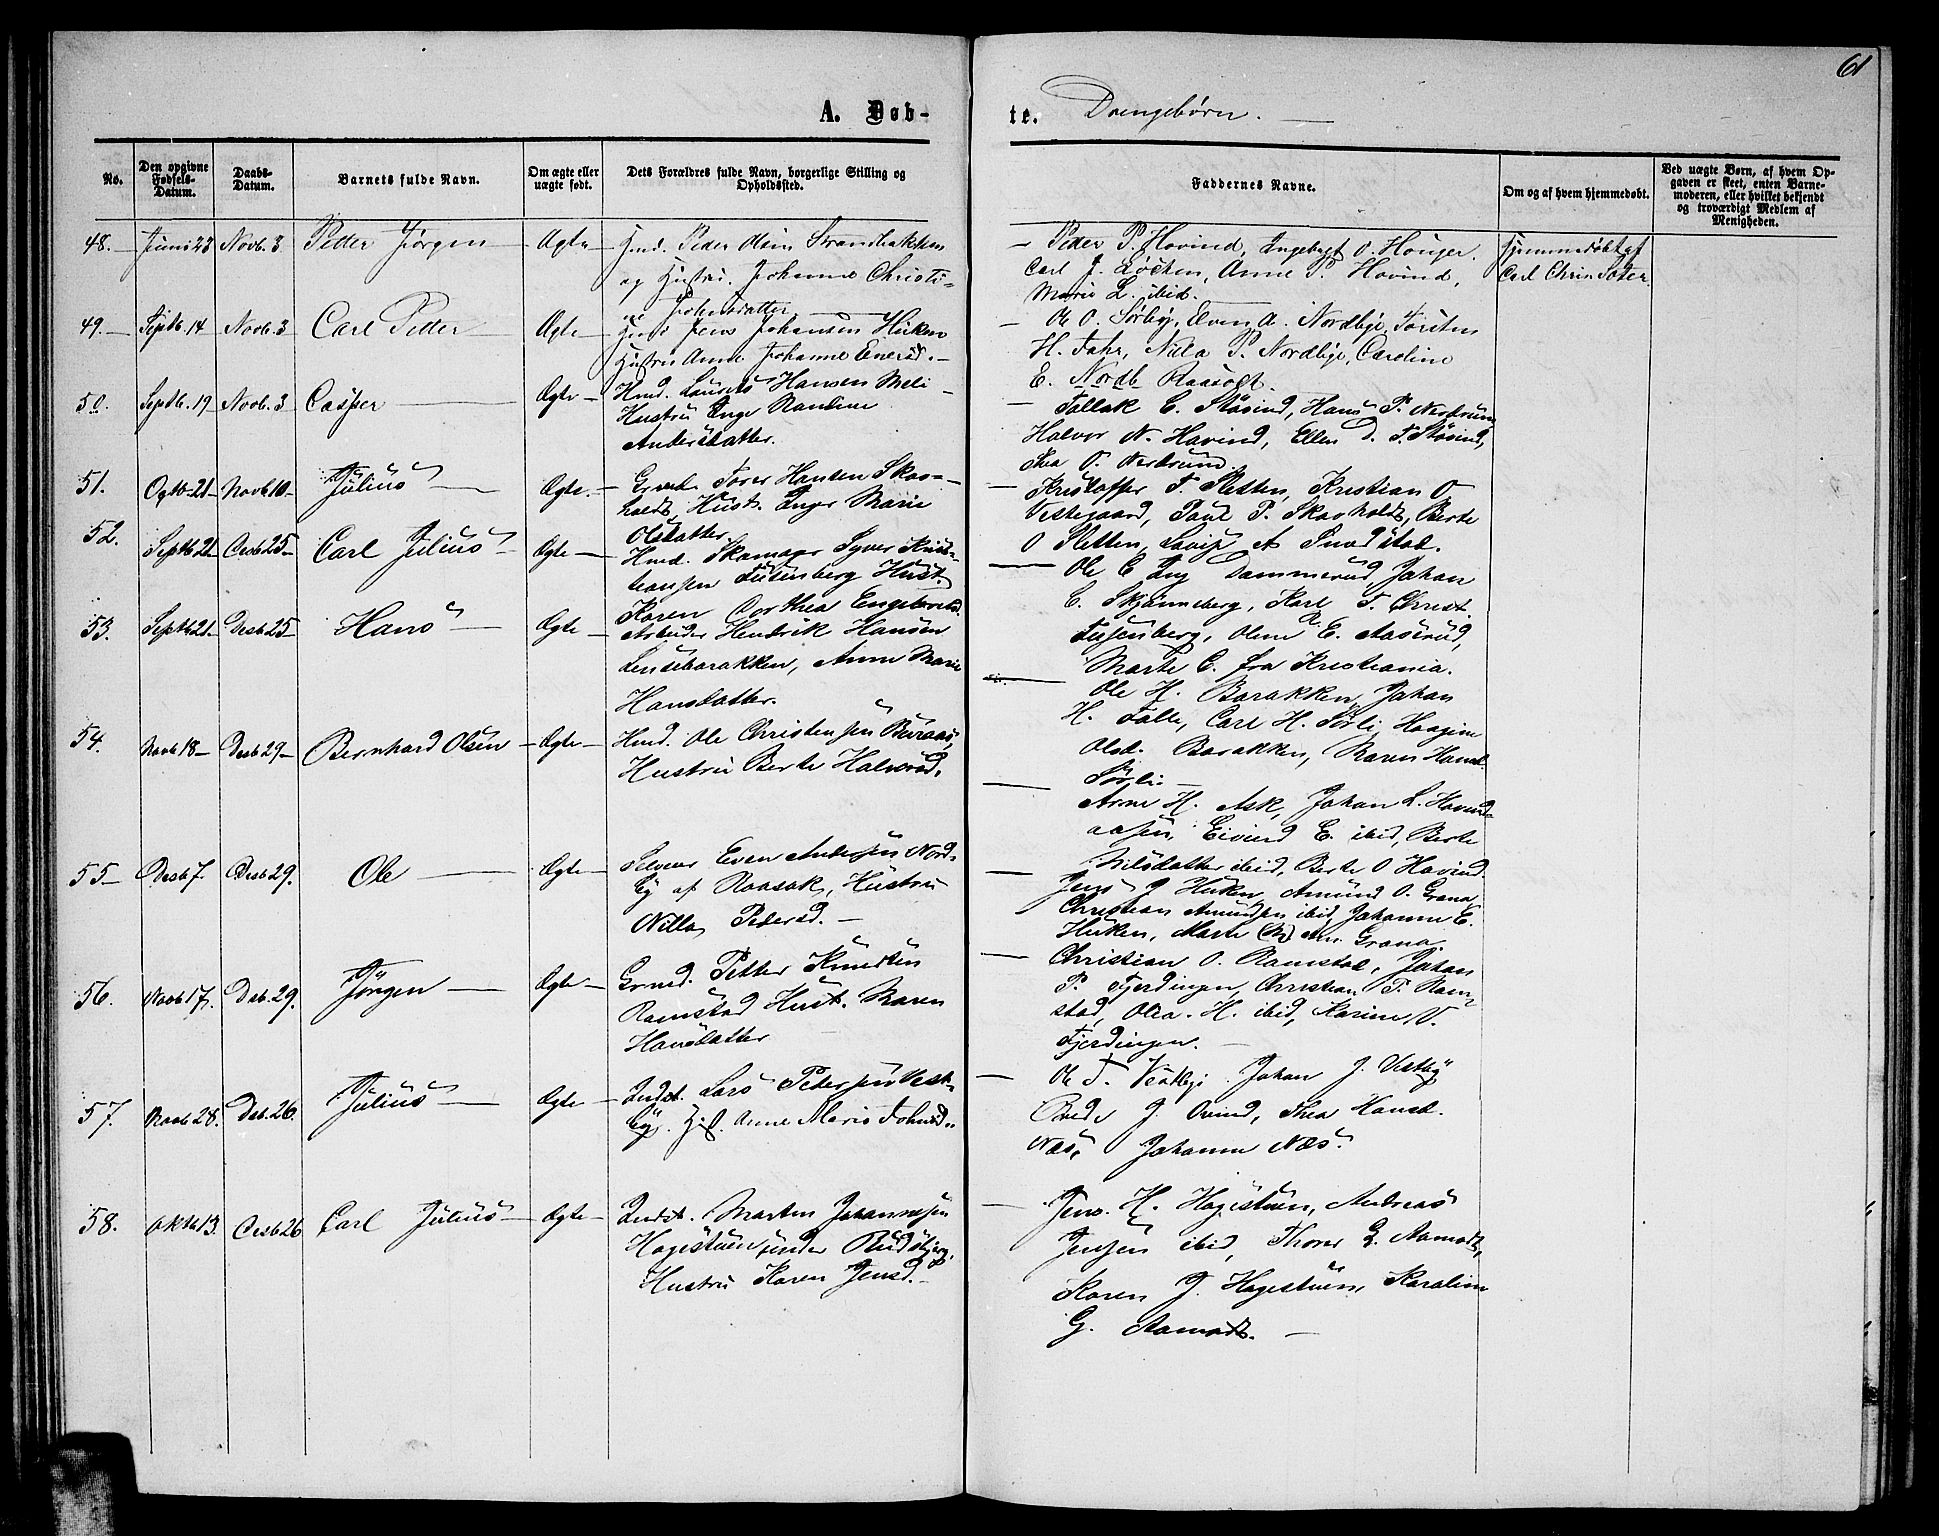 61
A. Døb-
te. Drengebørn.
No.
Den opgivne Fødsels-Datum.
Daabs-Datum.
Barnets fulde Navn.
Om ægte eller uægte født.
Dets Forældres fulde Navn, borgerlige Stilling og Opholdssted.
Faddernes Navne.
Om og af hvem hjemmedøbt.
Ved uægte Børn, af hvem Opgaven er skeet, enten Barnemoderen, eller hvilket bekjendt og troværdigt Medlem af Menigheden.
48. Juni 23 Novb. 3 Petter Jørgen Ægte
Hmd. Peder Olsen Strandbakken
og Hustru Johanne Christi-
ne Johnsdatter
Peder P. Hovind, Ingebregt O. Houger.
Carl J. Løchen, Anne P. Hovind,
Marie L. ibid.
Hjemmedøbt af
Carl Chrin
49. Septb. 14 Novb. 3 Carl Petter Ægte
Hmd Jens Johansen Huken
Hustru Anne Johanne Enersd.
Ole O. Sørby, Even A. Nordbye, Torsten
H. Fahr, Nilla P. Nordbye, Caroline
E. Nordb Raasogt.
50. Septb. 19 Novb. 3 Casper Ægte
Hmd. Laurits Hansen Meli
Hustru Inge Randine
Andersdatter.
Tollak C. Støvind, Hans P. Nerdrum
Halvor N. Hovind, Ellen D. T. Støvind,
Thea O. Nerdrum.
51. Ogtb. 21 Novb 10 Julius Ægte
Grmd. Torer Hansen Skov-
holdt, Hust. Inger Marie
Olsdatter
Kristoffer T. Sletten, Kristian O
Vestegaard, Paul P. Skovholdt, Berte
O Sletten, Lovise A
52. Septb 21 Desb 25 Carl Julius Ægte
Hmd. Skomager Syver Krist-
iansen Tusenberg Hust.
Karen Dorthea Engebretsd.
Ole E Ing Dammerud, Johan
C. Skjønneberg, Karl T. Christ.
Tusenberg, Oline E. Aaserud,
Marte C. fra Kristiania.
53. Septb 21 Desb 25 Hans Ægte
Arbeider Hendrik Hansen
Lensebarakken, Anne Marie
Hansdatter.
Ole H. Barakken, Johan
H. Falle, Carl H. Sørli, Haagine
Olsd. Barakken, Karen Hansd.
Sørli
54. Novb 18 Desb 29 Bernhard Olsen Ægte
Hmd. Ole Christensen
Hustru Berte Halvorsd.
Arne H. Ask, Johan L. Hovind-
aasen, Eivind E. ibid, Berte
Nilsdatter ibid, Berte O Hovind
55 Desb 7. Desb 29. Ole Ægte
Selveier Even Andersen Nord-
by af Raasok, Hustru
Nilla Pedersd.
Jens J Huken, Amund O. Grana,
Christian Amundsen ibid, Johanne E.
Huken, Marte Grana.
56. Novb 17. Deb. 29. Jørgen Ægte
Grmd. Petter Knudsen
Ramstad Hust. Maren
Hansdatter
Christian O. Ramstad, Johan
P. Fjerdingen, Christian P. Ram-
stad, Olea. H. ibid, Karine V.
Fjerdingen.
57. Novb 28. Deb. 26. Julius Ægte
Indst. Lars Petersen Vest-
by. Hust. Anne Marie Johnsd.
Ole T. Vestbye Johan J. Vestby
Brede J. Ovind, Thea Hansd.
Næs, Johanne Næs.
58. Oktb 13. Desb 26 Carl Julius Ægte
Indst. Marten Johannesen
Hagestuen under Rudsbjerg,
Hustru Karen Jensd.
Jens. H. Hagestuen, Andreas
Jensen ibid, Thorer G. Aamodt,
Karen J. Hagestuen, Karoline
G. Aamodt.